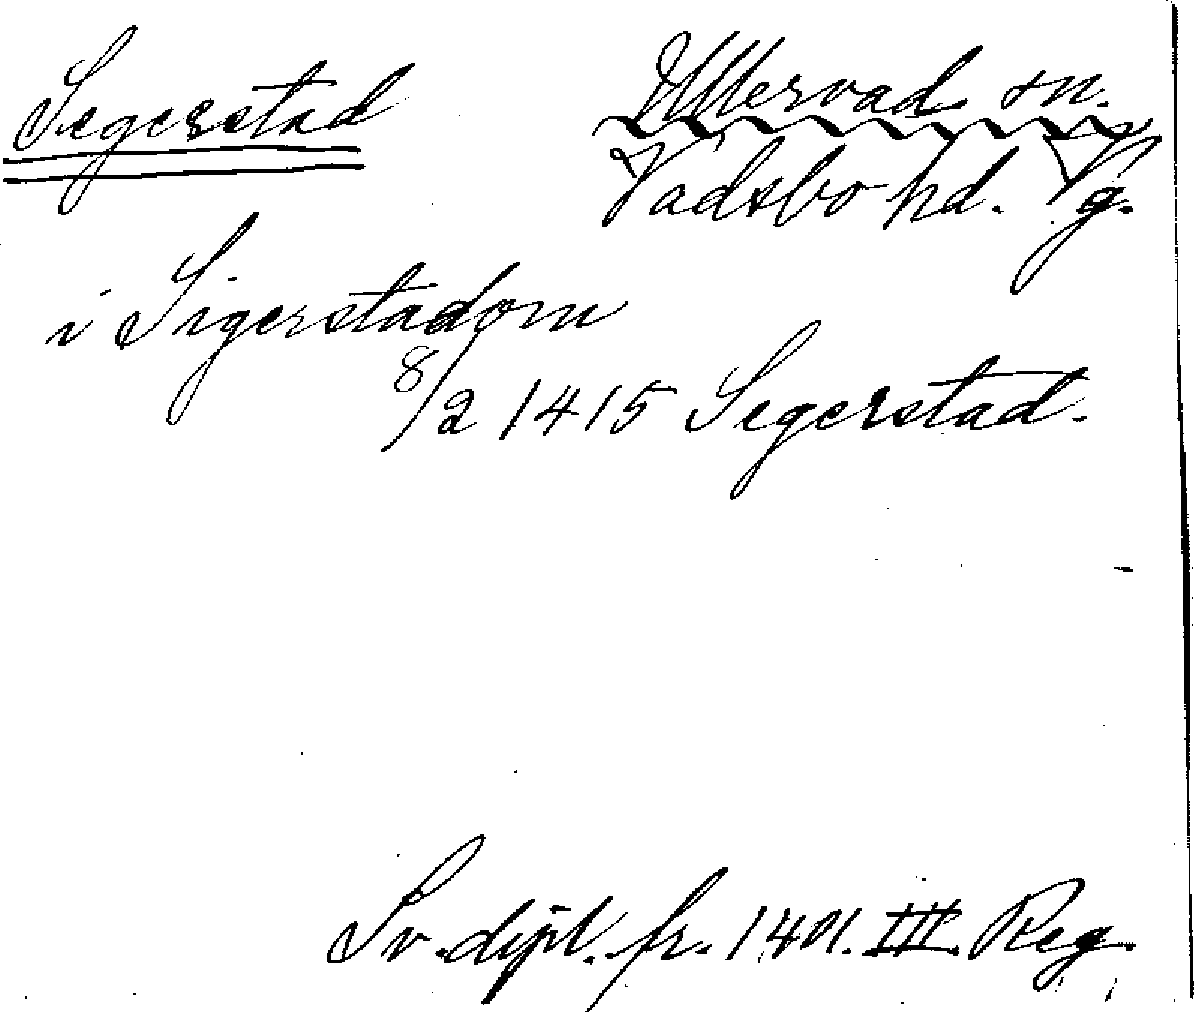 Segerstad
Ullervad sn.
Vadsbo hd. Vg.
i Sigerstadom
8/2 1415 Segerstad.
Sv. dipl. fr. 1401. III. Reg.